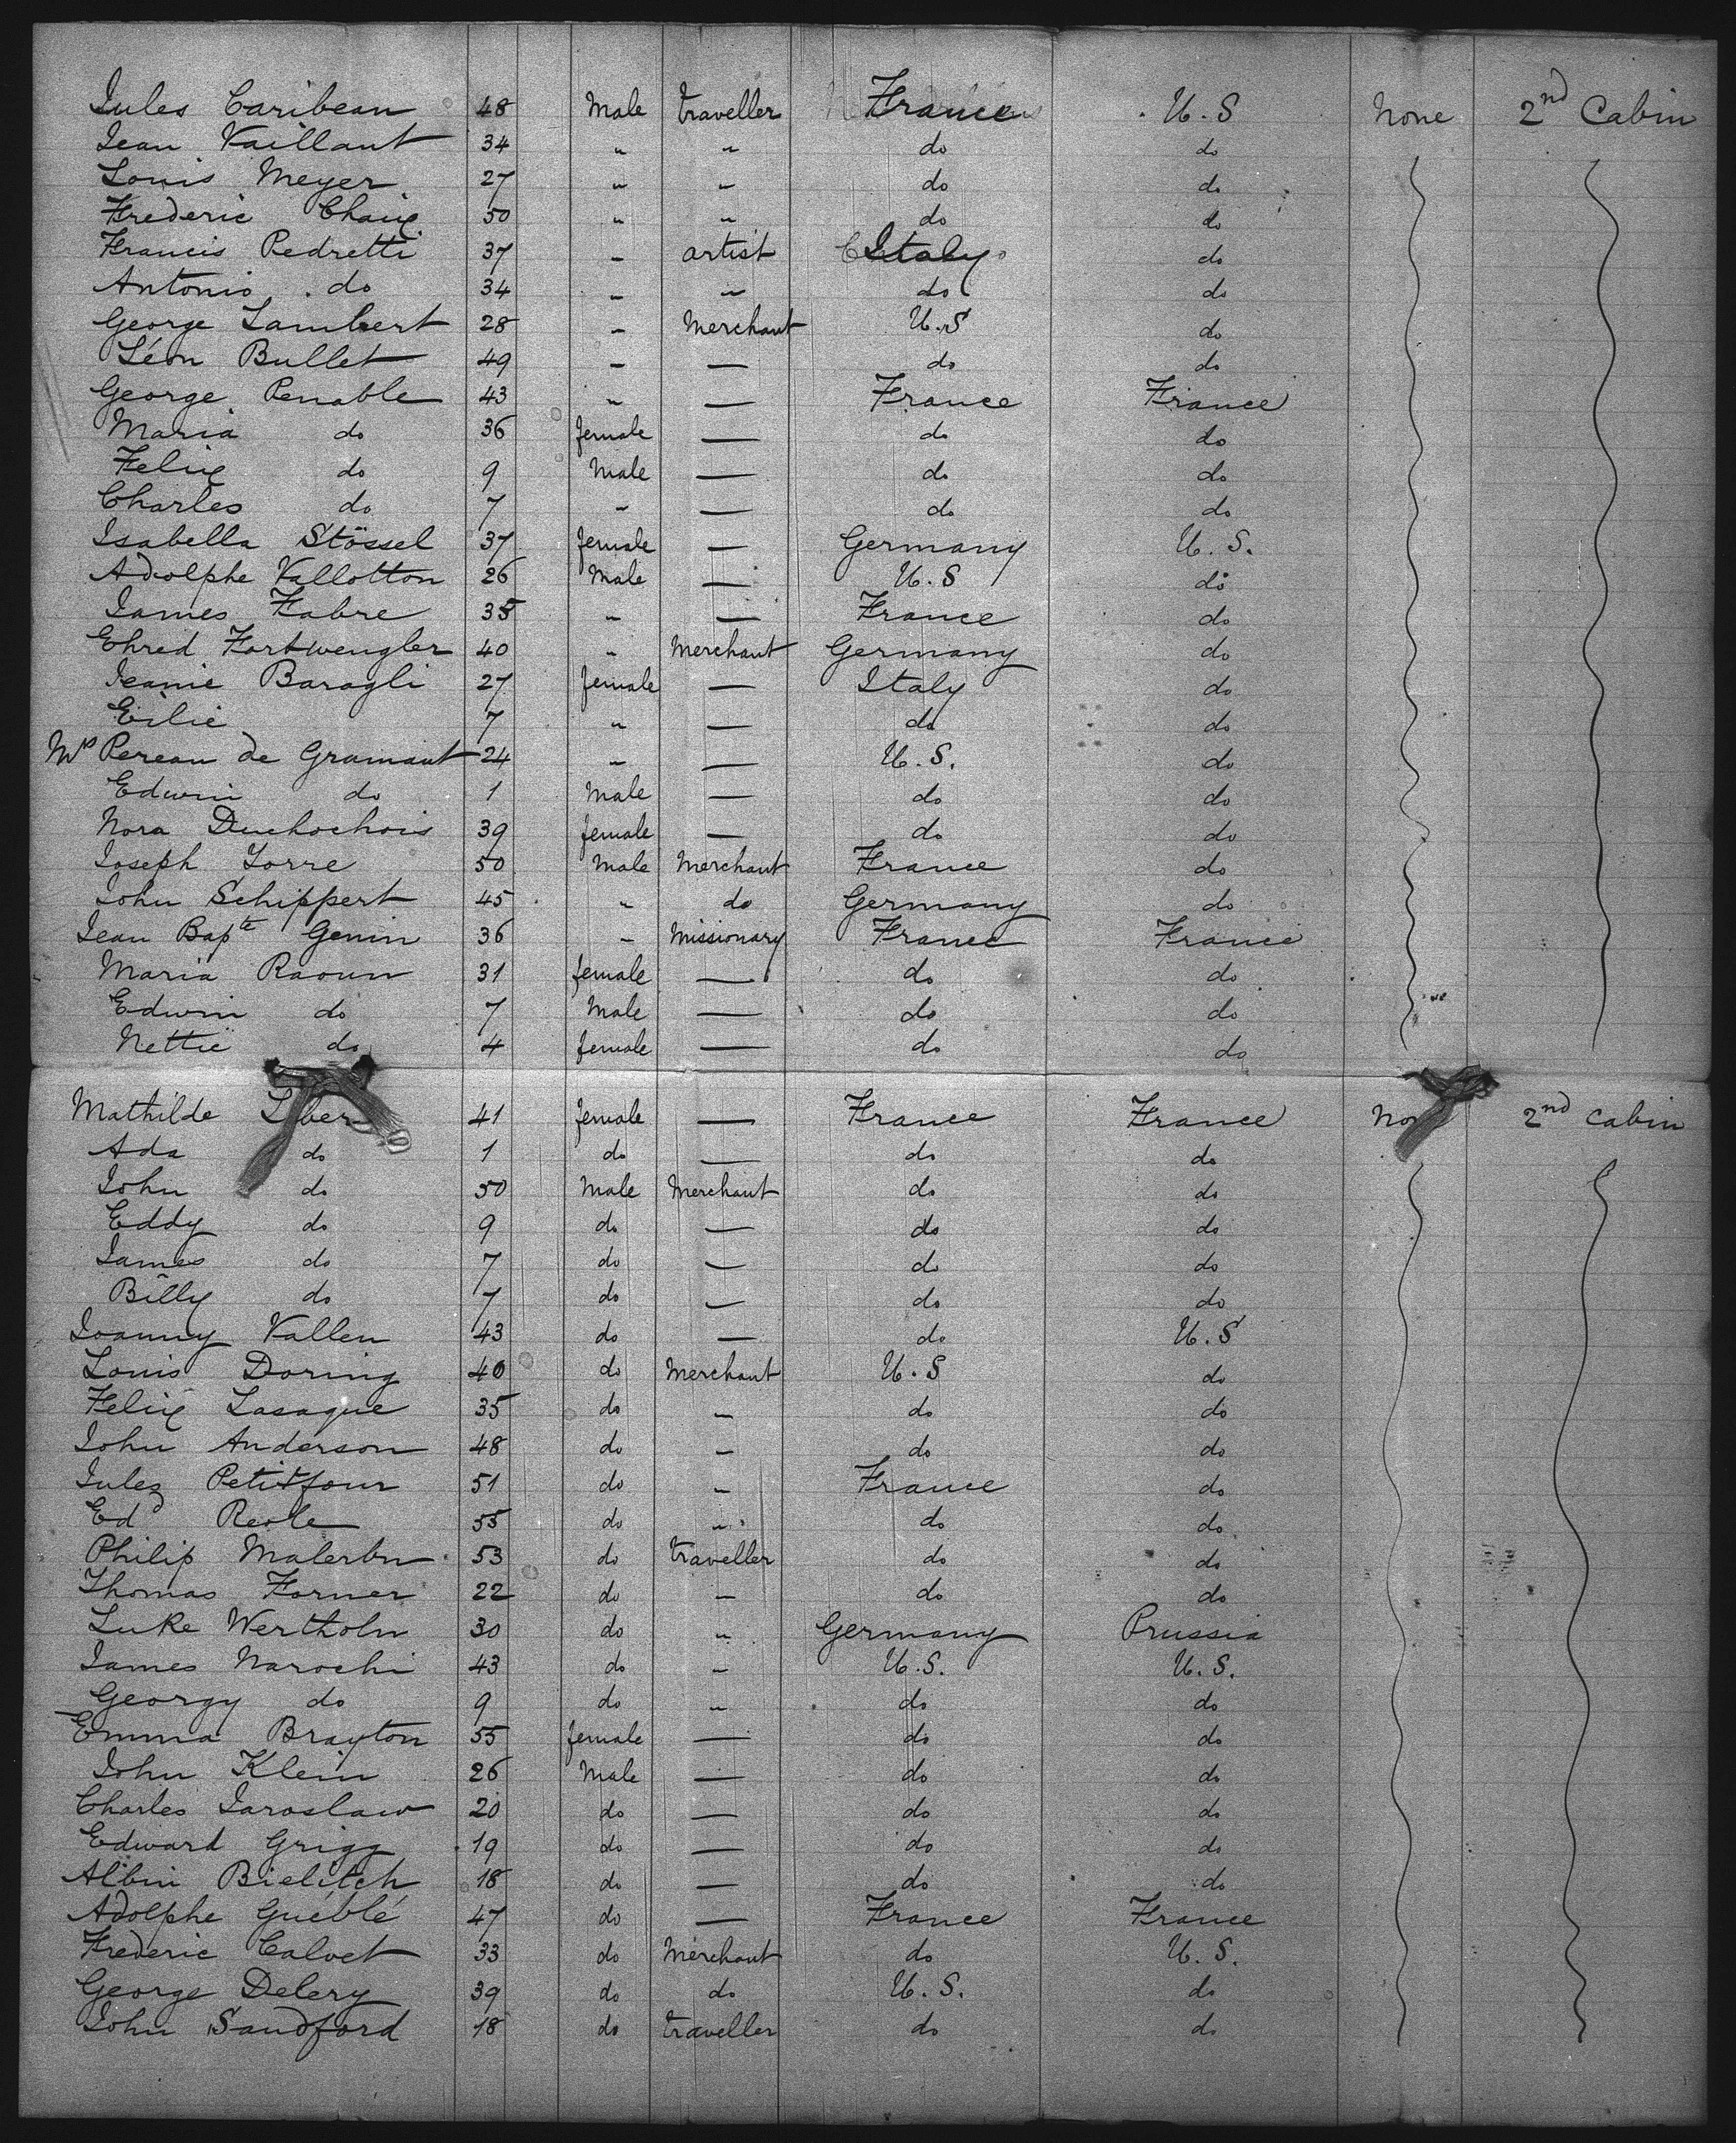 Jules Caribean 48 Male traveller France U.S None 2nd Cabin
Jean Vaillant 34 " " do do
Louis Meyer 27 " " do do
Frederic Chaix 50 " " do do
Francis Pedretti 37 " artist Italy do
Antonio do 34 " " do do
George Lambert 28 " Merchant U.S do
Léon Bullet 49 " — do do
George Penable 43 " — France France
Maria do 36 female — do do
Felix do 9 Male — do do
Charles do 7 " — do do
Isabella Stössel 37 female — Germany U.S.
Adolphe Vallotton 26 Male — U.S do
James Fabre 35 " — France do
Ehred Fortwengler 40 " Merchant Germany do
Jeanie Baragli 27 female — Italy do
Eilie 7 " — do do
Ms Pereau de Gramant 24 " — U.S. do
Edwin do 1 Male — do do
Nora Duchochois 39 female — do do
Joseph Torre 50 Male Merchant France do
John Schippert 45 " do Germany do
Jean Bapte Genin 36 " Missionary France France
Maria Raoun 31 female — do do
Edwin do 7 Male — do do
Nettie do 4 female — do do
Mathilde 41 female — France France 2nd Cabin
Ada do 1 do — do do
John do 50 Male Merchant do do
Eddy do 9 do — do do
James do 7 do — do do
Billy do 7 do — do do
Joanny Vallen 43 do — do U.S
Louis Doring 40 do Merchant U.S do
Felix Lasague 35 do " do do
John Anderson 48 do " do do
Jules Petitfour 51 do " France do
Edd Reole 55 do " do do
Philip Malerbn 53 do traveller do do
Thomas Forner 22 do " do do
Luke Wertholn 30 do " Germany Prussia
James Narochi 43 do " U.S. U.S.
Georgy do 9 do " do do
Emma Brayton 55 female — do do
John Klein 26 Male — do do
Charles Jaroslaw 20 do — do do
Edward Grigg 19 do — do do
Albin Bielitch 18 do — do do
Adolphe Guéblé 47 do — France France
Frederic Calvet 33 do Merchant do U.S.
George Delery 39 do do U.S. do
John Sandford 18 do traveller do do